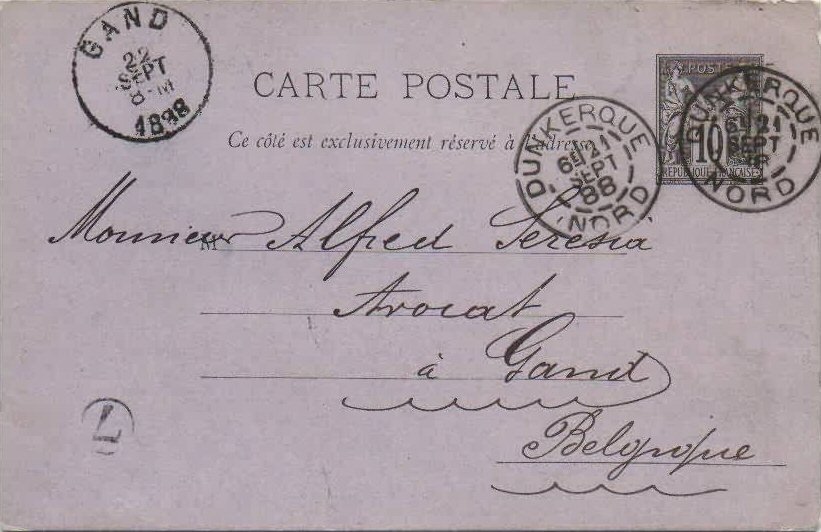 GAND
22
SEPT
8-M
1888
CARTE POSTALE
Ce côté est exclusivement réservé à l'adresse
POSTE
10
RÉPUBLIQUE FRANÇAISE
DUNKERQUE
6E 21
SEPT
88
NORD
DUNKERQUE
6E 21
SEPT
88
NORD
M
Monsieur Alfred Seresia
Avocat
à Gand
Belgique
7